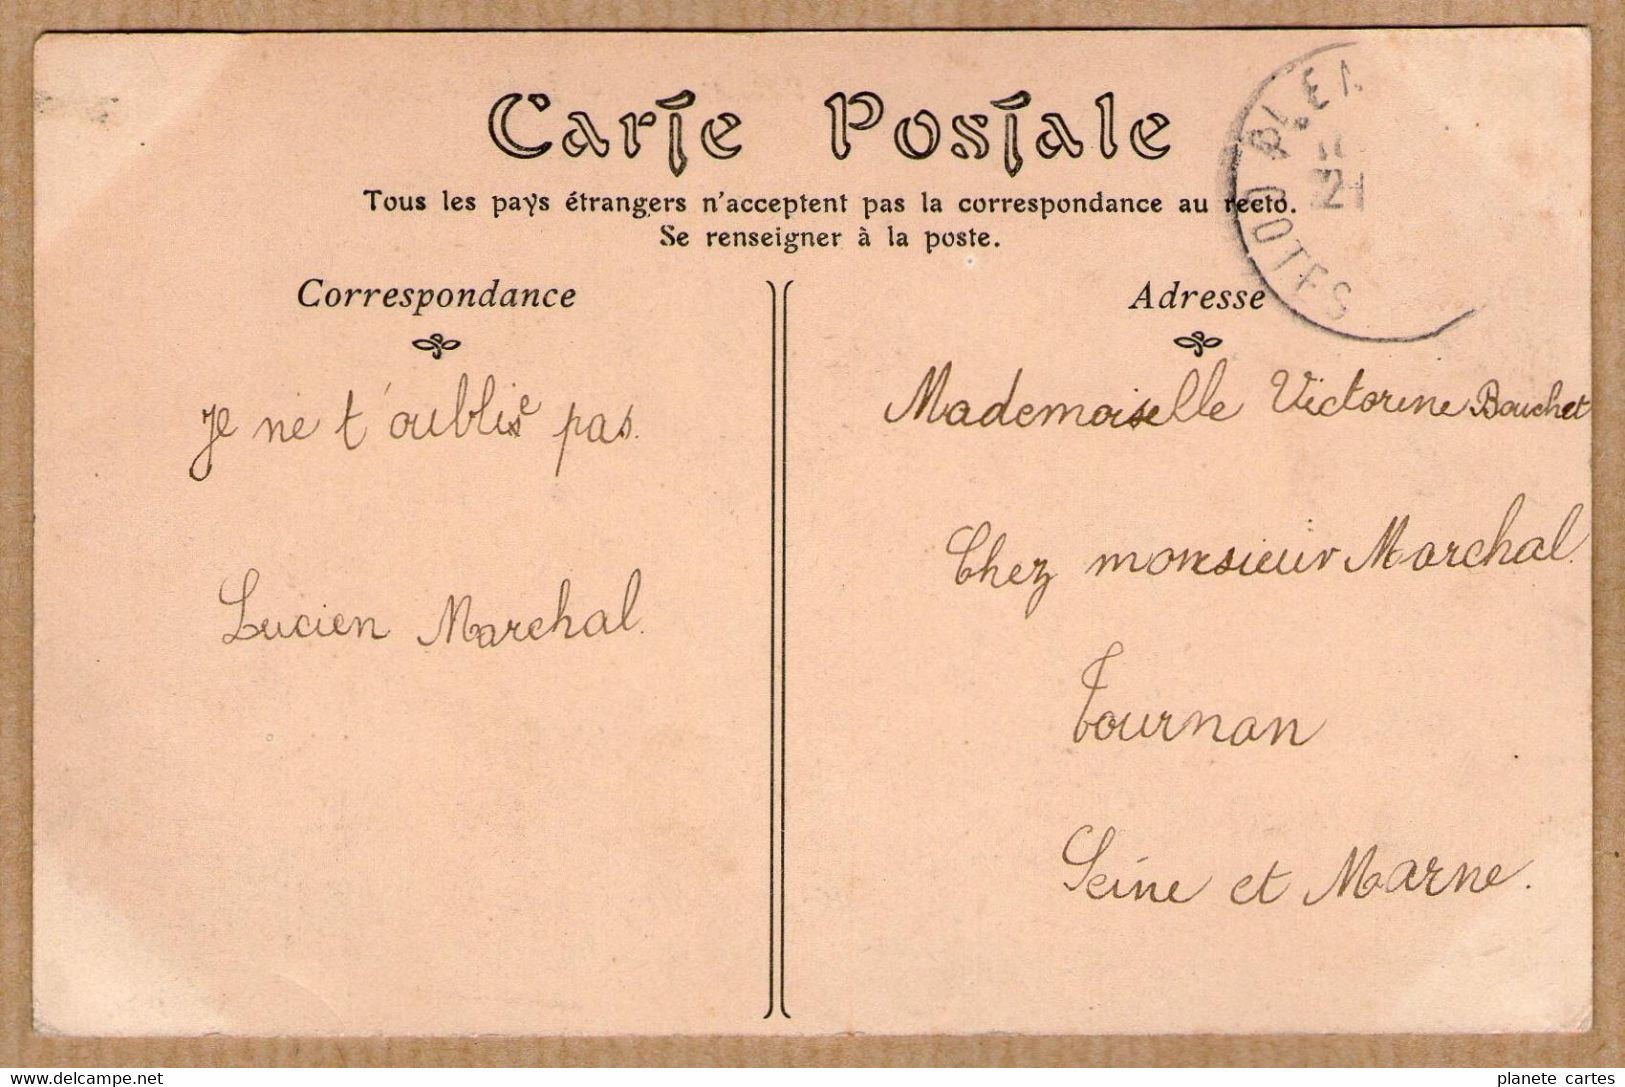 Carte Postale
Tous les pays étrangers n'acceptent pas la correspondance au recto.
Se renseigner à la poste.
Correspondance
Je ne t'oublie pas.
Lucien Marchal.
Adresse
Mademoiselle Victorine Bouchet
Chez monsieur Marchal.
Tournan
Seine et Marne.
planete cartes